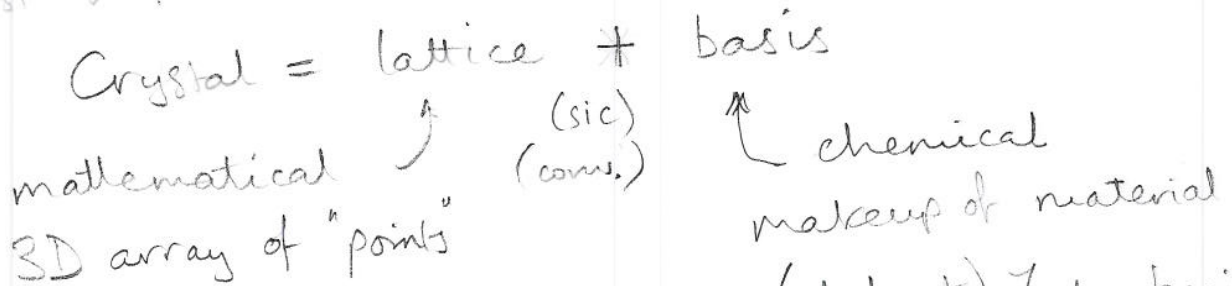 Crystal = lattice + basis
(sic)
(conv.)
mathematical
3D array of "points"
chemical
makeup of material